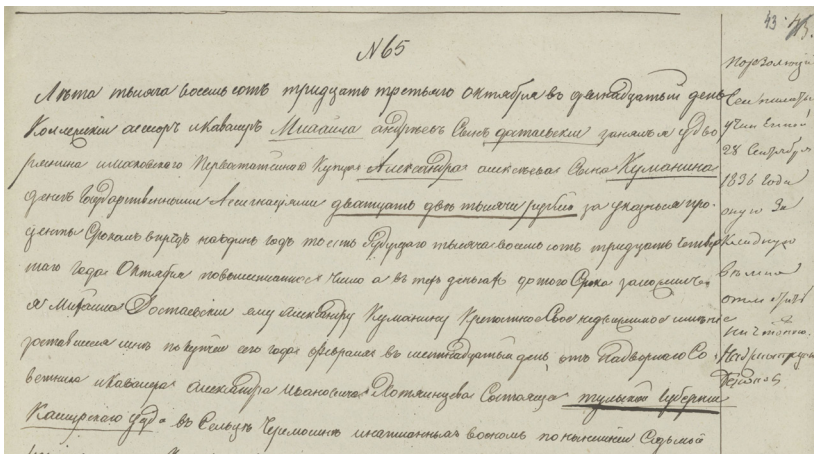 43
N 65
Лѣта тысяча восемь сотъ тридцать третьяго октября въ двенадцатый день
Коллежскій ассесоръ и Кавалеръ Михайла андреевъ Сынъ достаевскій занялъ я у дво
рянина и московского Первостатейнаго Купца Александра алексеева Сына Куманина
денегъ Государственными Ассигнаціями дватцать двѣ тысячи рублей за указныя про
центы Срокомъ впредь на одинъ годъ то есть будущаго тысяча восемь сотъ тридцать четвер
таго года Октября по вышеписанное число а въ техъ деньгахъ до того Срока заложилъ
я Михайла Достаевскій ему Александру Куманину Крепостное Свое недвижимое имѣніе
доставшееся мнѣ по купчей сего года февраля въ день отъ Надворнаго Со
ветника и Кавалера александра Ивановича Хотяинцова Состоящее тульской Губерніи
Каширскаго уезда въ Сельце Черемошне и написанныя въ ономъ по нынешней Седьмой
по
учиненной
28 Сентября
1836 Года
оную За
кладную